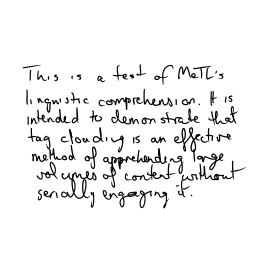 This is a test of MeTL's
linguistic comprehension. It is
intended to demonstrate that
tag clouding is an effective
method of apprehending large
volumes of content without
serially engaging it.